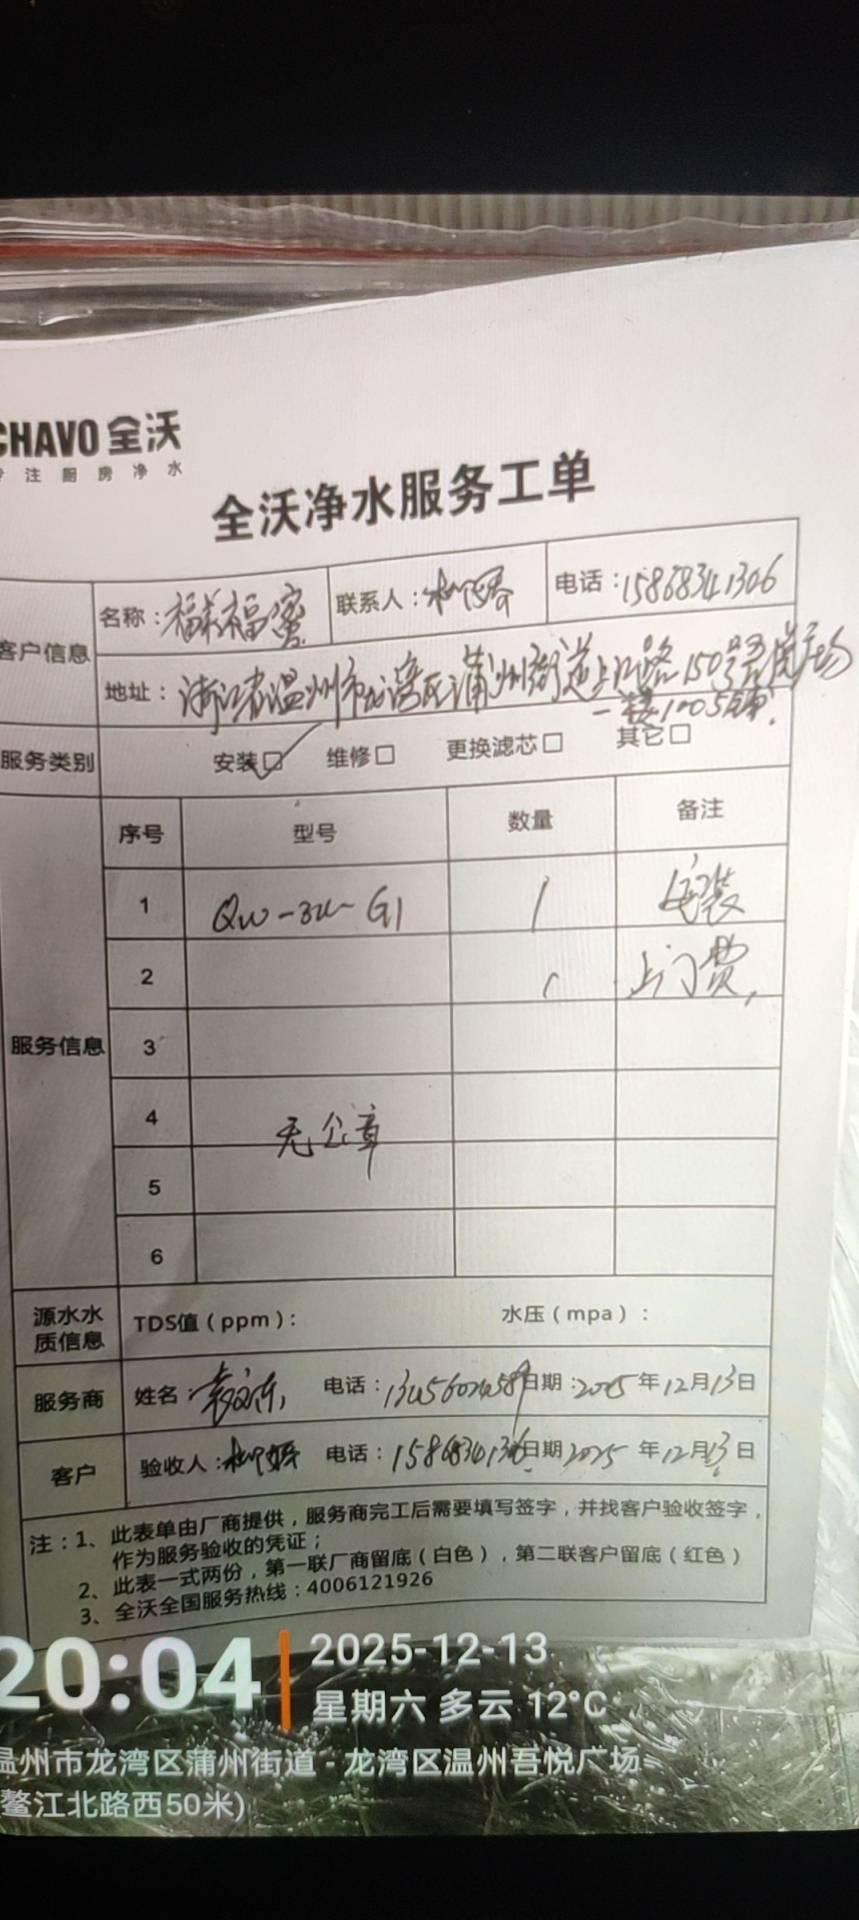 CHAVO 全沃
专注厨房净水
全沃净水服务工单
客户信息
名称：福美福蜜
联系人：
电话：15868341306
地址：浙江省温州市龙湾区蒲州街道上江路150号吾悦广场
一楼1005铺
服务类别
安装 维修 更换滤芯 其它
服务信息
序号 型号 数量 备注
1 QW-3W-G1 1 安装
2 上门费
3
4 无公章
5
6
源水水质信息
TDS值（ppm）： 水压（mpa）：
服务商 姓名： 电话： 日期：2025年12月13日
客户 验收人： 电话： 日期 2025年12月13日
注：1、此表单由厂商提供，服务商完工后需要填写签字，并找客户验收签字，
作为服务验收的凭证；
2、此表一式两份，第一联厂商留底（白色），第二联客户留底（红色）
3、全沃全国服务热线：4006121926
20:04
2025-12-13
星期六 多云 12°C
温州市龙湾区蒲州街道 - 龙湾区温州吾悦广场
鳌江北路西50米)